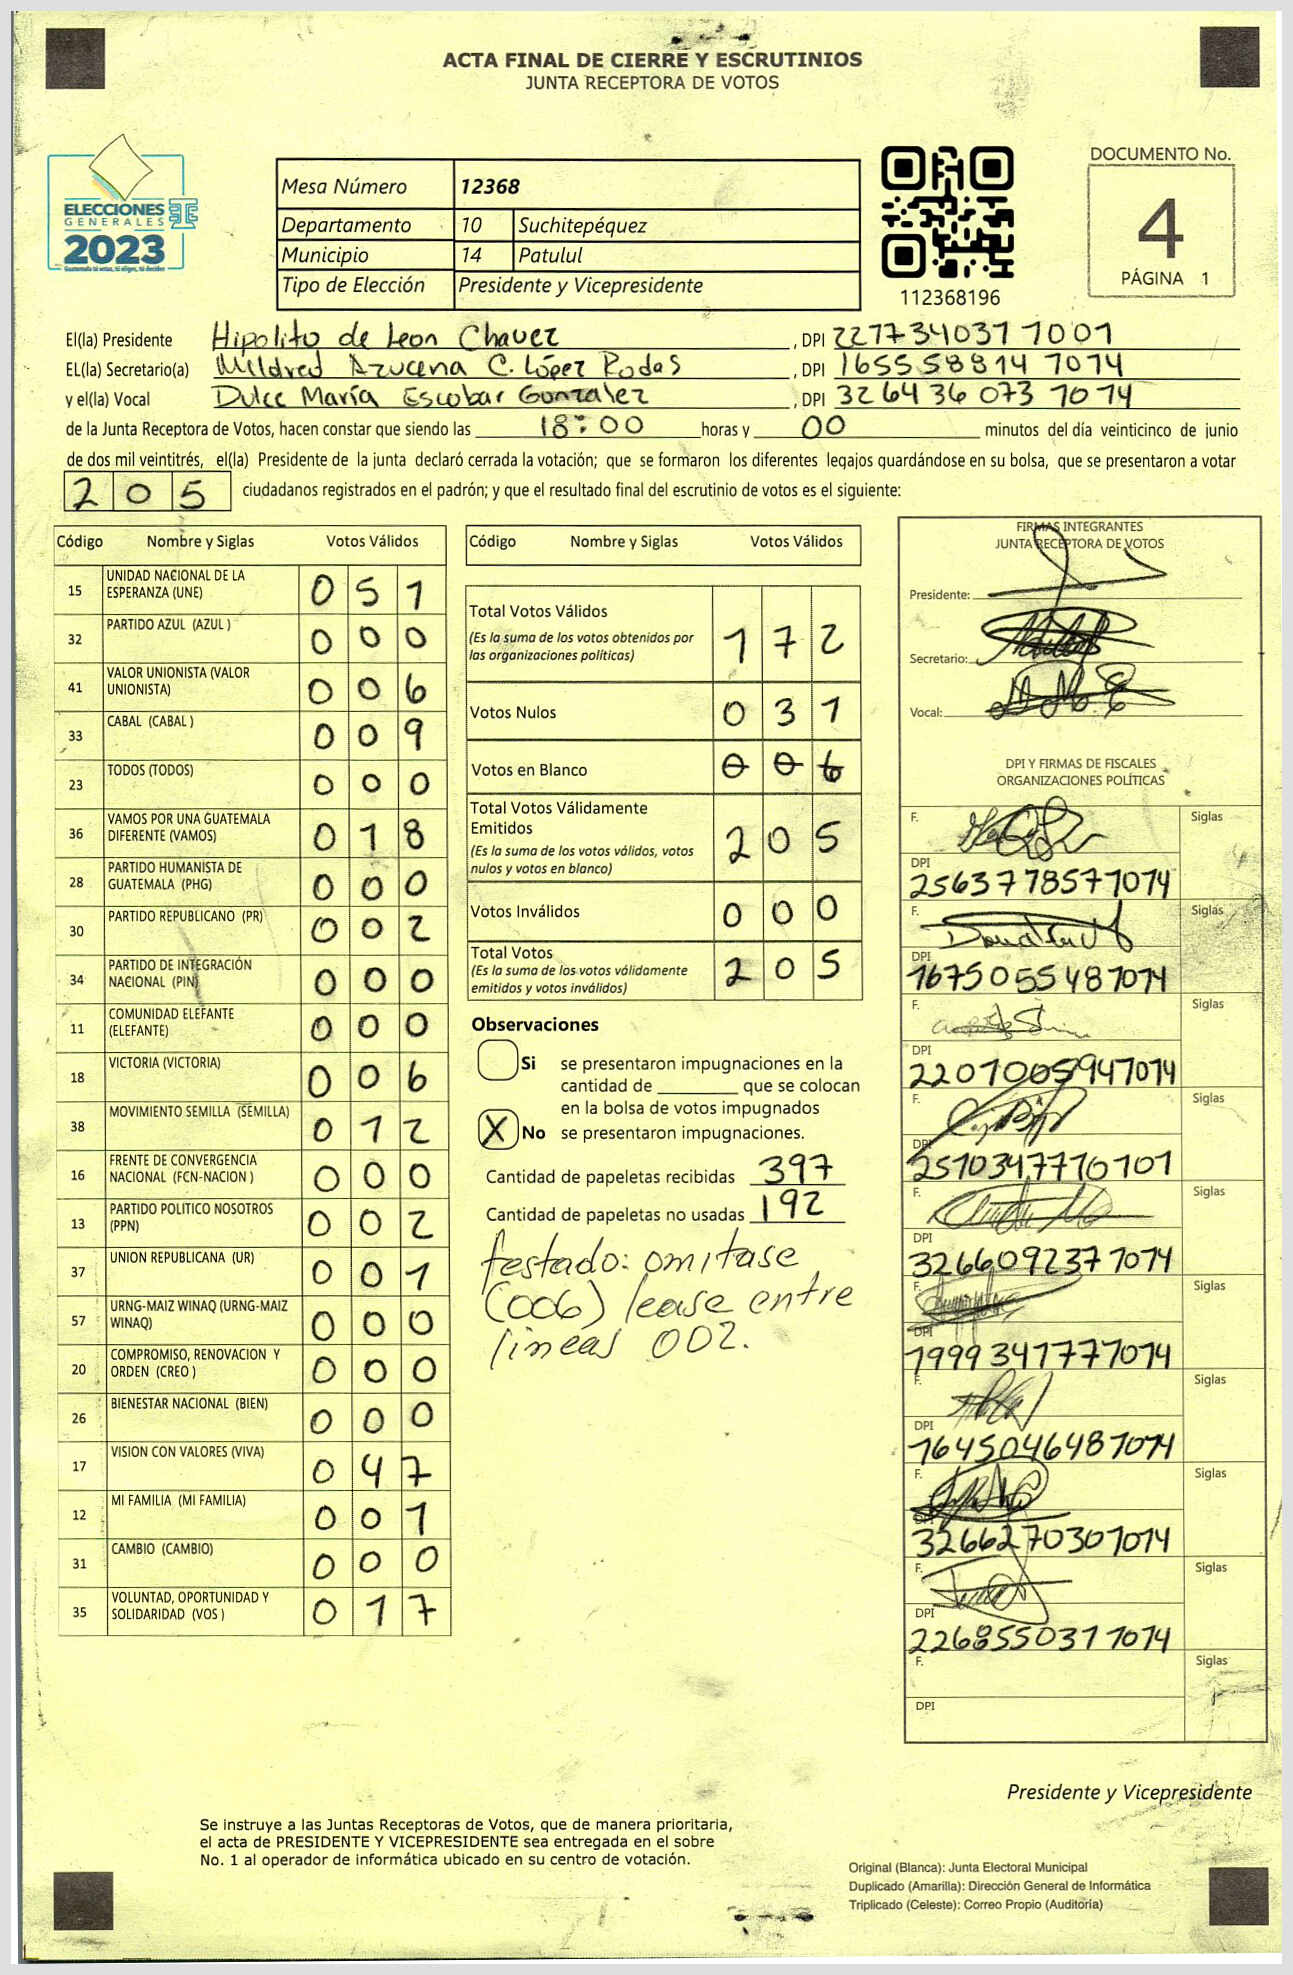 ACTA FINAL DE CIERRE Y ESCRUTINIOS
JUNTA RECEPTORA DE VOTOS
ELECCIONES
GENERALES
2023
Guatemala tú votas, tú eliges, tú decides
Mesa Número 12368
Departamento 10 Suchitepéquez
Municipio 14 Patulul
Tipo de Elección Presidente y Vicepresidente
112368196
DOCUMENTO No.
4
PÁGINA 1
El(la) Presidente Hipolito de Leon Chavez, DPI 2277340377001
EL(la) Secretario(a) Mildred Azucena C. López Rodas, DPI 1655588147074
y el(la) Vocal Dulce María Escobar Gonzalez, DPI 3264360737074
de la Junta Receptora de Votos, hacen constar que siendo las 18:00 horas y 00 minutos del día veinticinco de junio
de dos mil veintitrés, el(la) Presidente de la junta declaró cerrada la votación; que se formaron los diferentes legajos guardándose en su bolsa, que se presentaron a votar
205 ciudadanos registrados en el padrón; y que el resultado final del escrutinio de votos es el siguiente:
Código Nombre y Siglas Votos Válidos
15 UNIDAD NACIONAL DE LA ESPERANZA (UNE) 051
32 PARTIDO AZUL (AZUL ) 000
41 VALOR UNIONISTA (VALOR UNIONISTA) 006
33 CABAL (CABAL ) 009
23 TODOS (TODOS) 000
36 VAMOS POR UNA GUATEMALA DIFERENTE (VAMOS) 018
28 PARTIDO HUMANISTA DE GUATEMALA (PHG) 000
30 PARTIDO REPUBLICANO (PR) 002
34 PARTIDO DE INTEGRACIÓN NACIONAL (PIN) 000
11 COMUNIDAD ELEFANTE (ELEFANTE) 000
18 VICTORIA (VICTORIA) 006
38 MOVIMIENTO SEMILLA (SEMILLA) 012
16 FRENTE DE CONVERGENCIA NACIONAL (FCN-NACION ) 000
13 PARTIDO POLITICO NOSOTROS (PPN) 002
37 UNION REPUBLICANA (UR) 001
57 URNG-MAIZ WINAQ (URNG-MAIZ WINAQ) 000
20 COMPROMISO, RENOVACION Y ORDEN (CREO ) 000
26 BIENESTAR NACIONAL (BIEN) 000
17 VISION CON VALORES (VIVA) 047
12 MI FAMILIA (MI FAMILIA) 001
31 CAMBIO (CAMBIO) 000
35 VOLUNTAD, OPORTUNIDAD Y SOLIDARIDAD (VOS ) 017
Código Nombre y Siglas Votos Válidos
Total Votos Válidos
(Es la suma de los votos obtenidos por
las organizaciones políticas) 172
Votos Nulos 031
Votos en Blanco 006
Total Votos Válidamente
Emitidos
(Es la suma de los votos válidos, votos
nulos y votos en blanco) 205
Votos Inválidos 000
Total Votos
(Es la suma de los votos válidamente
emitidos y votos inválidos) 205
Observaciones
Si se presentaron impugnaciones en la
cantidad de ________ que se colocan
en la bolsa de votos impugnados
X No se presentaron impugnaciones.
Cantidad de papeletas recibidas 397
Cantidad de papeletas no usadas 192
testado: omitase
(006) lease entre
lineas 002.
FIRMAS INTEGRANTES
JUNTA RECEPTORA DE VOTOS
Presidente:
Secretario:
Vocal:
DPI Y FIRMAS DE FISCALES
ORGANIZACIONES POLÍTICAS
F. Siglas
DPI
2563778577074
F. Siglas
DPI
1675055487074
F. Siglas
DPI
2207005947074
F. Siglas
DPI
2510347770101
F. Siglas
DPI
3266092377074
F. Siglas
DPI
1999341777074
F. Siglas
DPI
1645046487074
F. Siglas
DPI
3266270307074
F. Siglas
DPI
2268550377074
F. Siglas
DPI
Presidente y Vicepresidente
Se instruye a las Juntas Receptoras de Votos, que de manera prioritaria,
el acta de PRESIDENTE Y VICEPRESIDENTE sea entregada en el sobre
No. 1 al operador de informática ubicado en su centro de votación.
Original (Blanca): Junta Electoral Municipal
Duplicado (Amarilla): Dirección General de Informática
Triplicado (Celeste): Correo Propio (Auditoría)